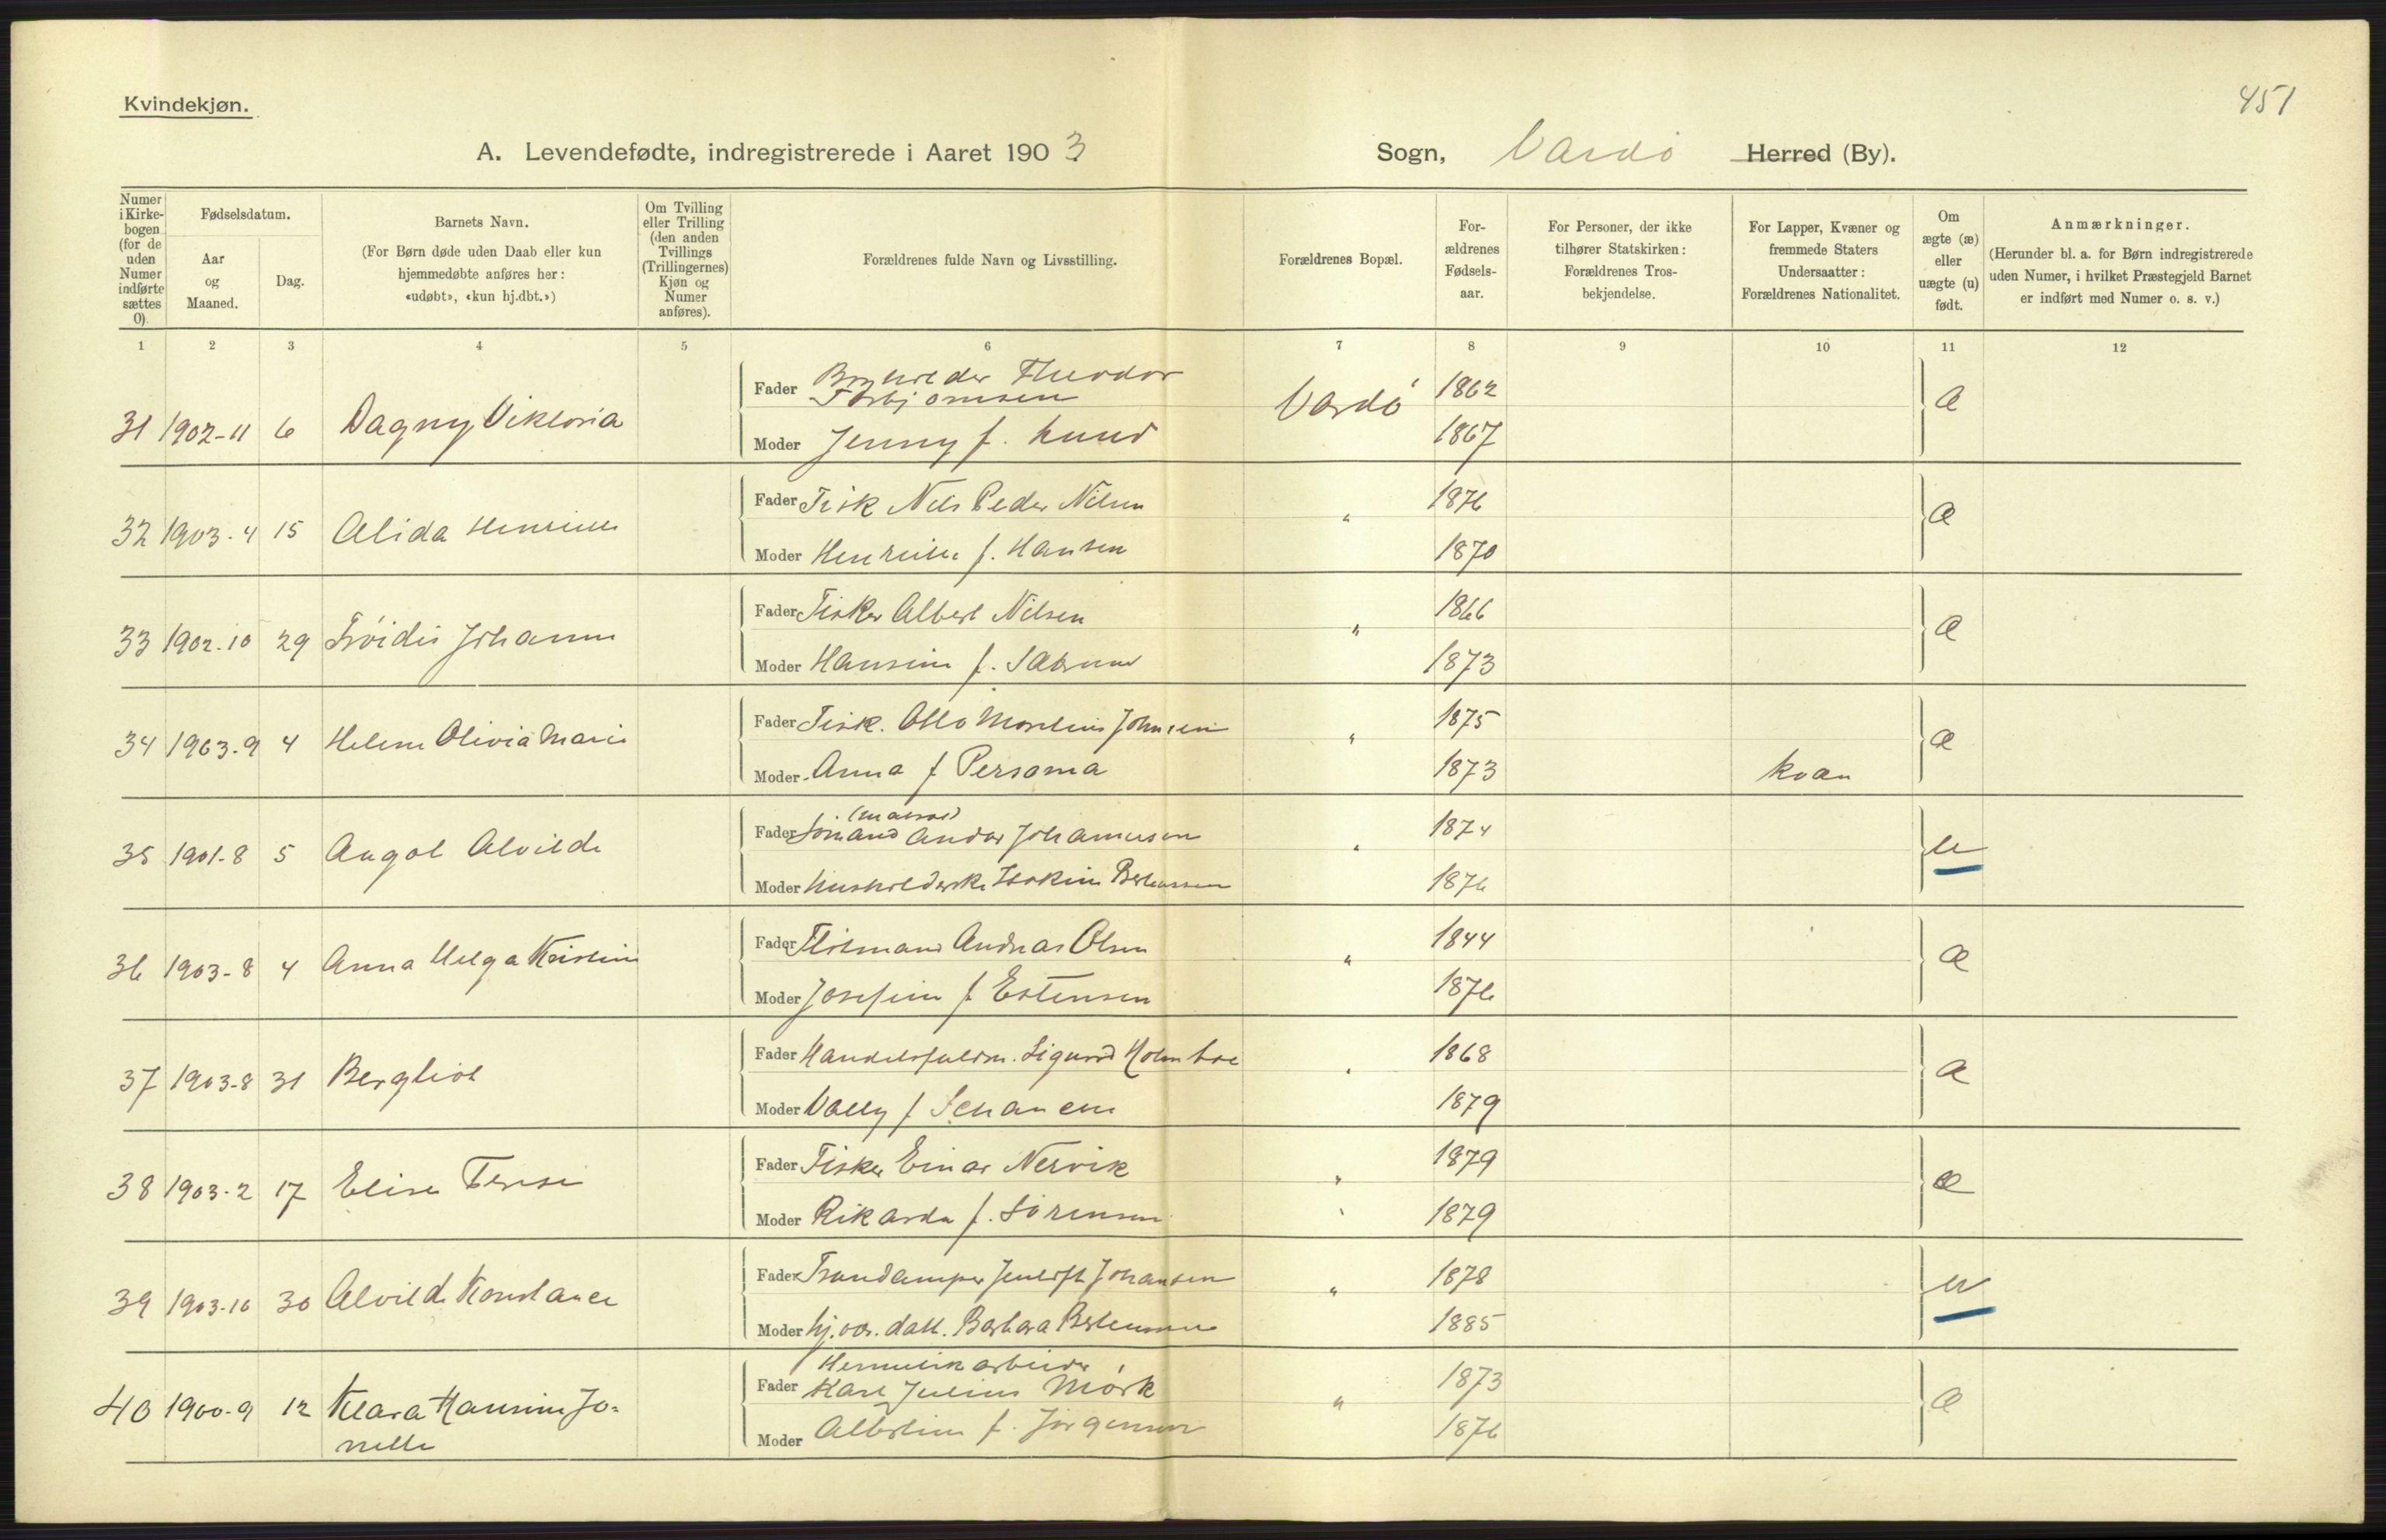 Kvindekjøn.
451
A. Levendefødte, indregistrerede i Aaret 1903 Sogn, Vardö Herred (By).
Numer i Kirkebogen (for de uden Numer indførte sættes 0).
Fødselsdatum.
Aar og Maaned.
Dag.
Barnets Navn.
(For Børn døde uden Daab eller kun hjemmedøbte anføres her: «udøbt», «kun hj.dbt.»)
Om Tvilling eller Trilling (den anden Tvillings (Trillingernes) Kjøn og Numer anføres).
Forældrenes fulde Navn og Livsstilling.
Forældrenes Bopæl.
Forældrenes Fødselsaar.
For Personer, der ikke tilhører Statskirken: Forældrenes Trosbekjendelse.
For Lapper, Kvæner og fremmede Staters Undersaatter: Forældrenes Nationalitet.
Om ægte (æ) eller uægte (u) født.
Anmærkninger.
(Herunder bl. a. for Børn indregistrerede uden Numer, i hvilket Præstegjeld Barnet er indført med Numer o. s. v.)
1 2 3 4 5 6 7 8 9 10 11 12
31 1902-11 6 Dagny Viktoria Fader Theodor Torbjørnsen Vardö 1862 æ
Moder Jenny f. Lund 1867
32 1903-4 15 Alida Fader Fisk Nils Peder Nilsen " 1876 æ
Moder f. Hansen 1870
33 1902-10 29 Fröidis Johanne Fader Fisker Albert Nilsen " 1866 æ
Moder Hansine f. 1873
34 1903-9 4 Helene Olivia Marie Fader Fisk. Otto Johnsen " 1875 æ
Moder Anna f Persama 1873 kvæn
35 1901-8 5 Alvilde Fader Andor Johannesen " 1874 u
Moder 1876
36 1903-8 4 Anna Helga Kristine Fader Andreas Olsen " 1844 æ
Moder Josefine f Estensen 1876
37 1903-8 31 Bergliot Fader Handelsfuldm. Sigurd Holmboe " 1868 æ
Moder Vally f Schanche 1879
38 1903-2 17 Elise Terese Fader Fisker Einar Nervik " 1879 æ
Moder Rikarda f. Sörensen " 1879
39 1903-10 30 Alvilde Konstance Fader Johansen " 1878 u
Moder hj.vær. datt. Barbara Berteussen 1885
Hermetikarbeider
40 1900-9 12 Klara Hansine Jo= Fader Karl Julius Mörk " 1873 æ
nelle Moder Albertine f. Jörgensen 1876